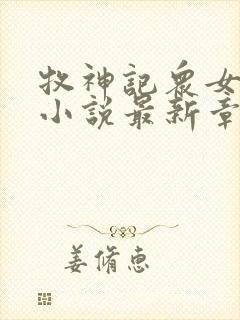 牧神記眾女
小說最新章
姜脩惠